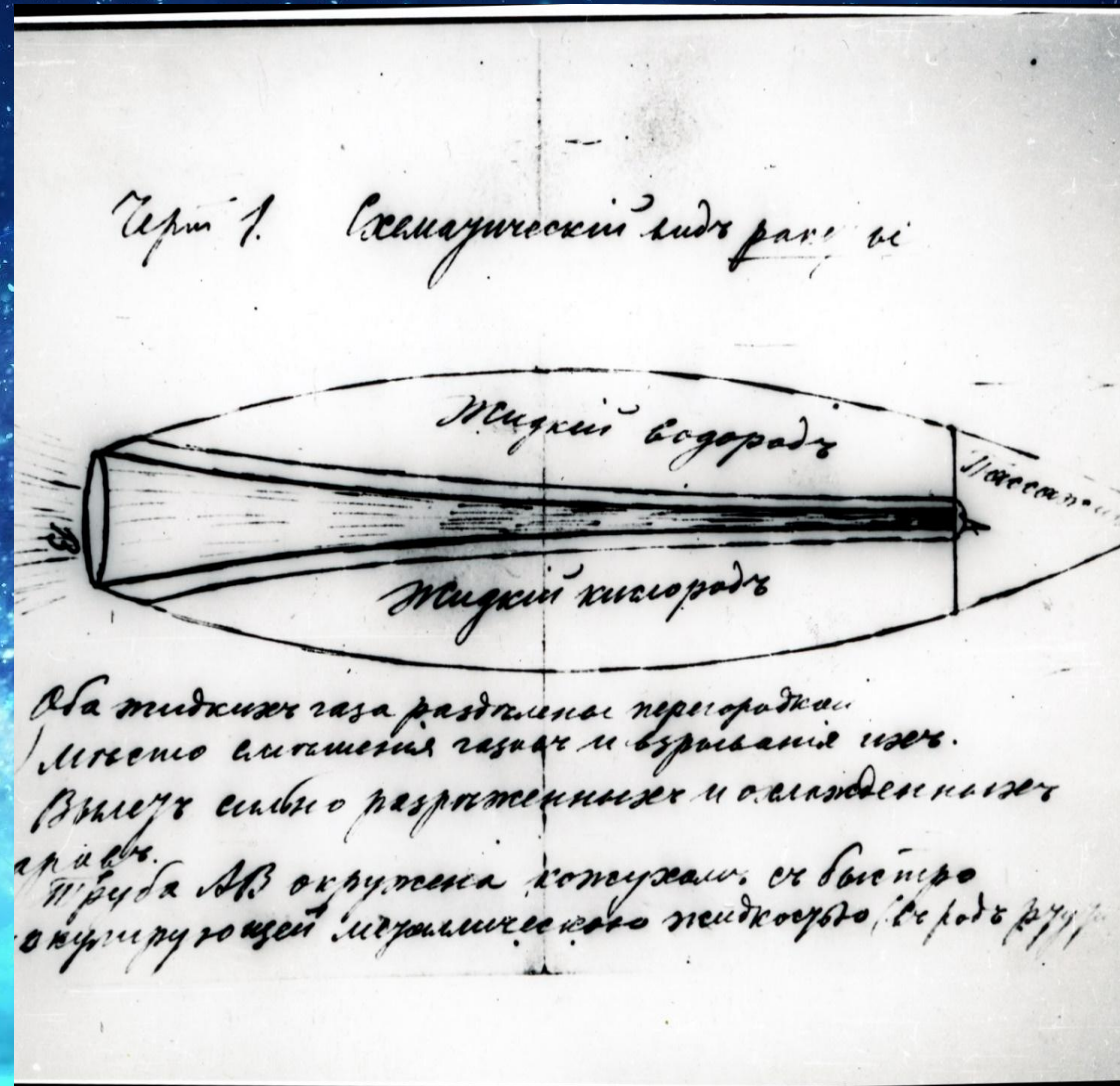 Черт 1. Схематическій видъ ракеты
Жидкій водородъ
Пассажи
В
Жидкій кислородъ
Оба жидкихъ газа раздѣлены перегородкой
Мѣсто смѣшенія газовъ и взрыванія ихъ.
Вылетъ сильно разрѣженныхъ и охлажденныхъ
аровъ.
Труба АВ окружена кожухомъ съ быстро
иркулирующей металлическою жидкостью (въ родѣ ртут